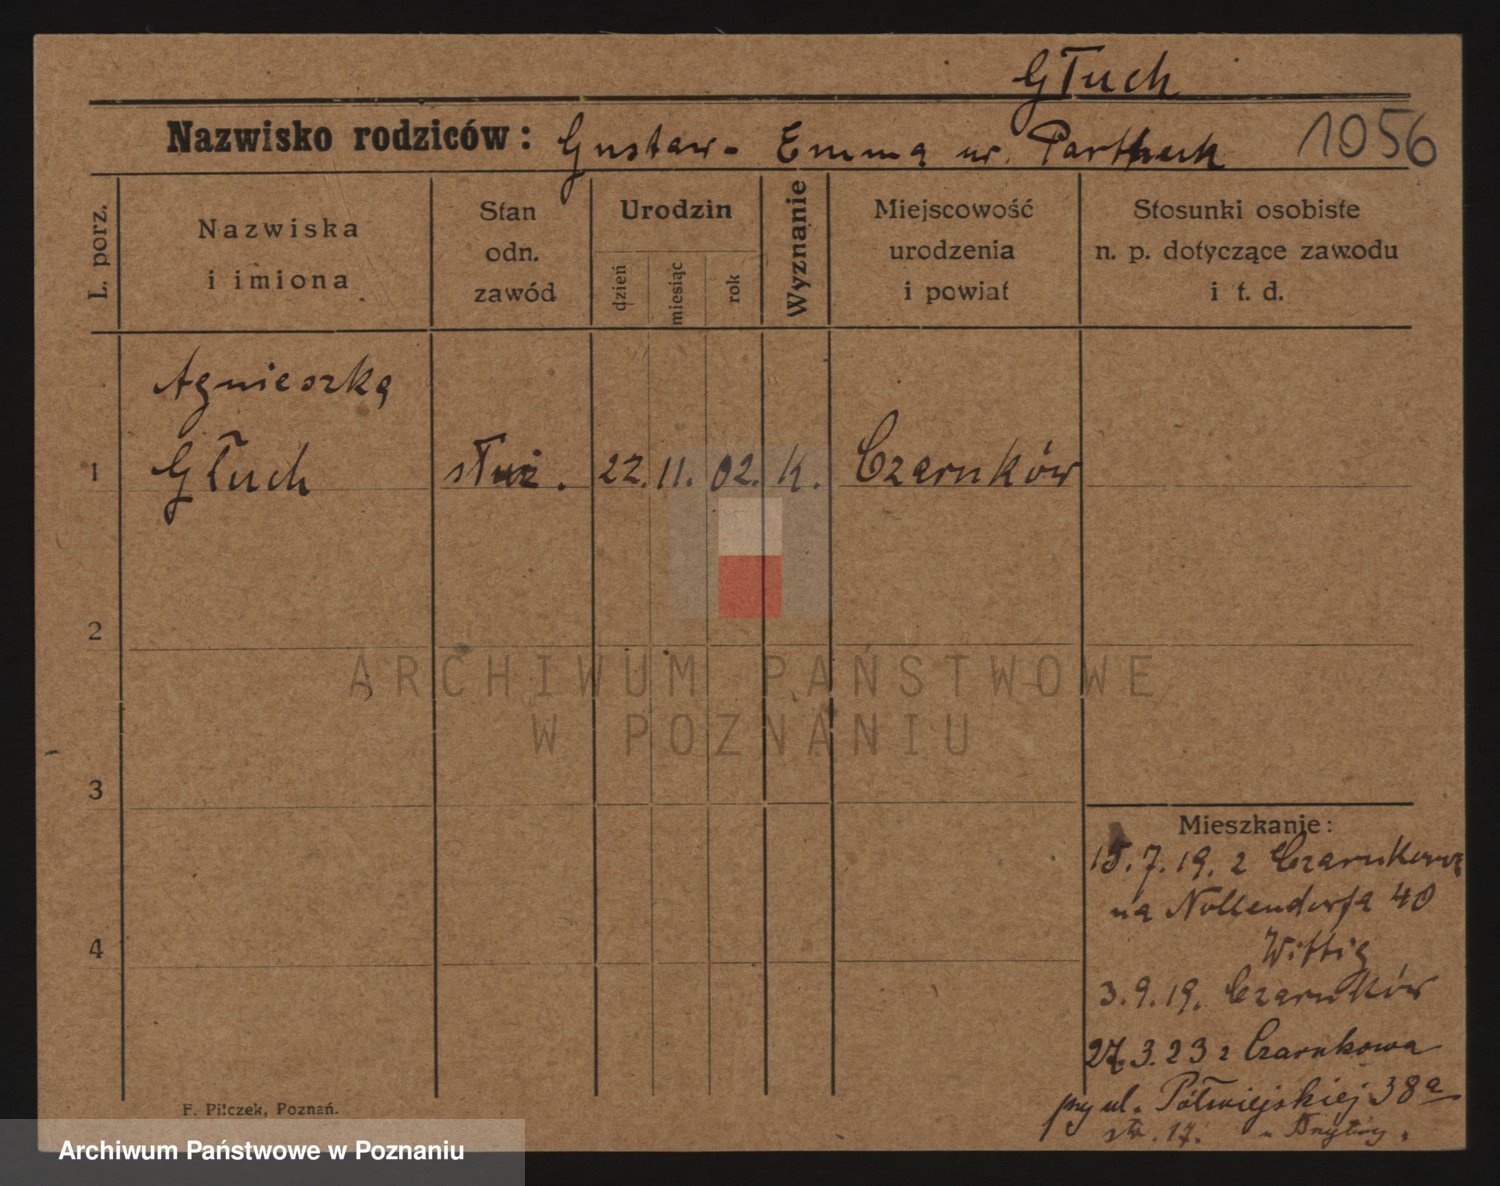 Głuch
Nazwisko rodziców: Gustaw - Emma ur. 1056
L. porz.
Nazwiska
i imiona
Stan
odn.
zawód
Urodzin
dzień
miesiąc
rok
Wyznanie
Miejscowość
urodzenia
i powiat
Stosunki osobiste
n. p. dotyczące zawodu
i t. d.
Agnieszka
1 Głuch służ. 22. 11. 02. K. Czarnków
2
ARCHIWUM PAŃSTWOWE
W POZNANIU
3
4
Mieszkanie:
15.7.19. z Czarnkowa
na Nollendorfa 40
Wittig
3.9.19. Czarnków
27.3.23 z Czarnkowa
przy ul. Półwiejskiej 38a
17.
F. Pilczek, Poznań.
Archiwum Państwowe w Poznaniu